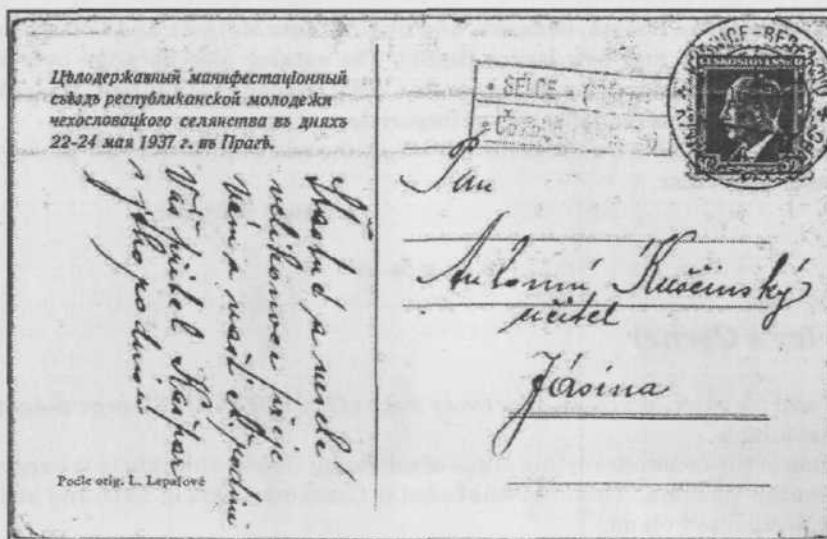 Цѣлодержавный манифестаціонный
съѣздъ республиканской молодежи
чехословацкого селянства въ дняхъ
22-24 мая 1937 г. въ Прагѣ.
Šťastné a veselé
velikonoce přeje
Vám a vaší ct. rodině
Váš přítel Kašpar
a jeho rodina
Podle orig. L. Lepařové
SELCE
ČESKOSLOVENSKO
Pan
Antonín Kuščinský
učitel
Jásina